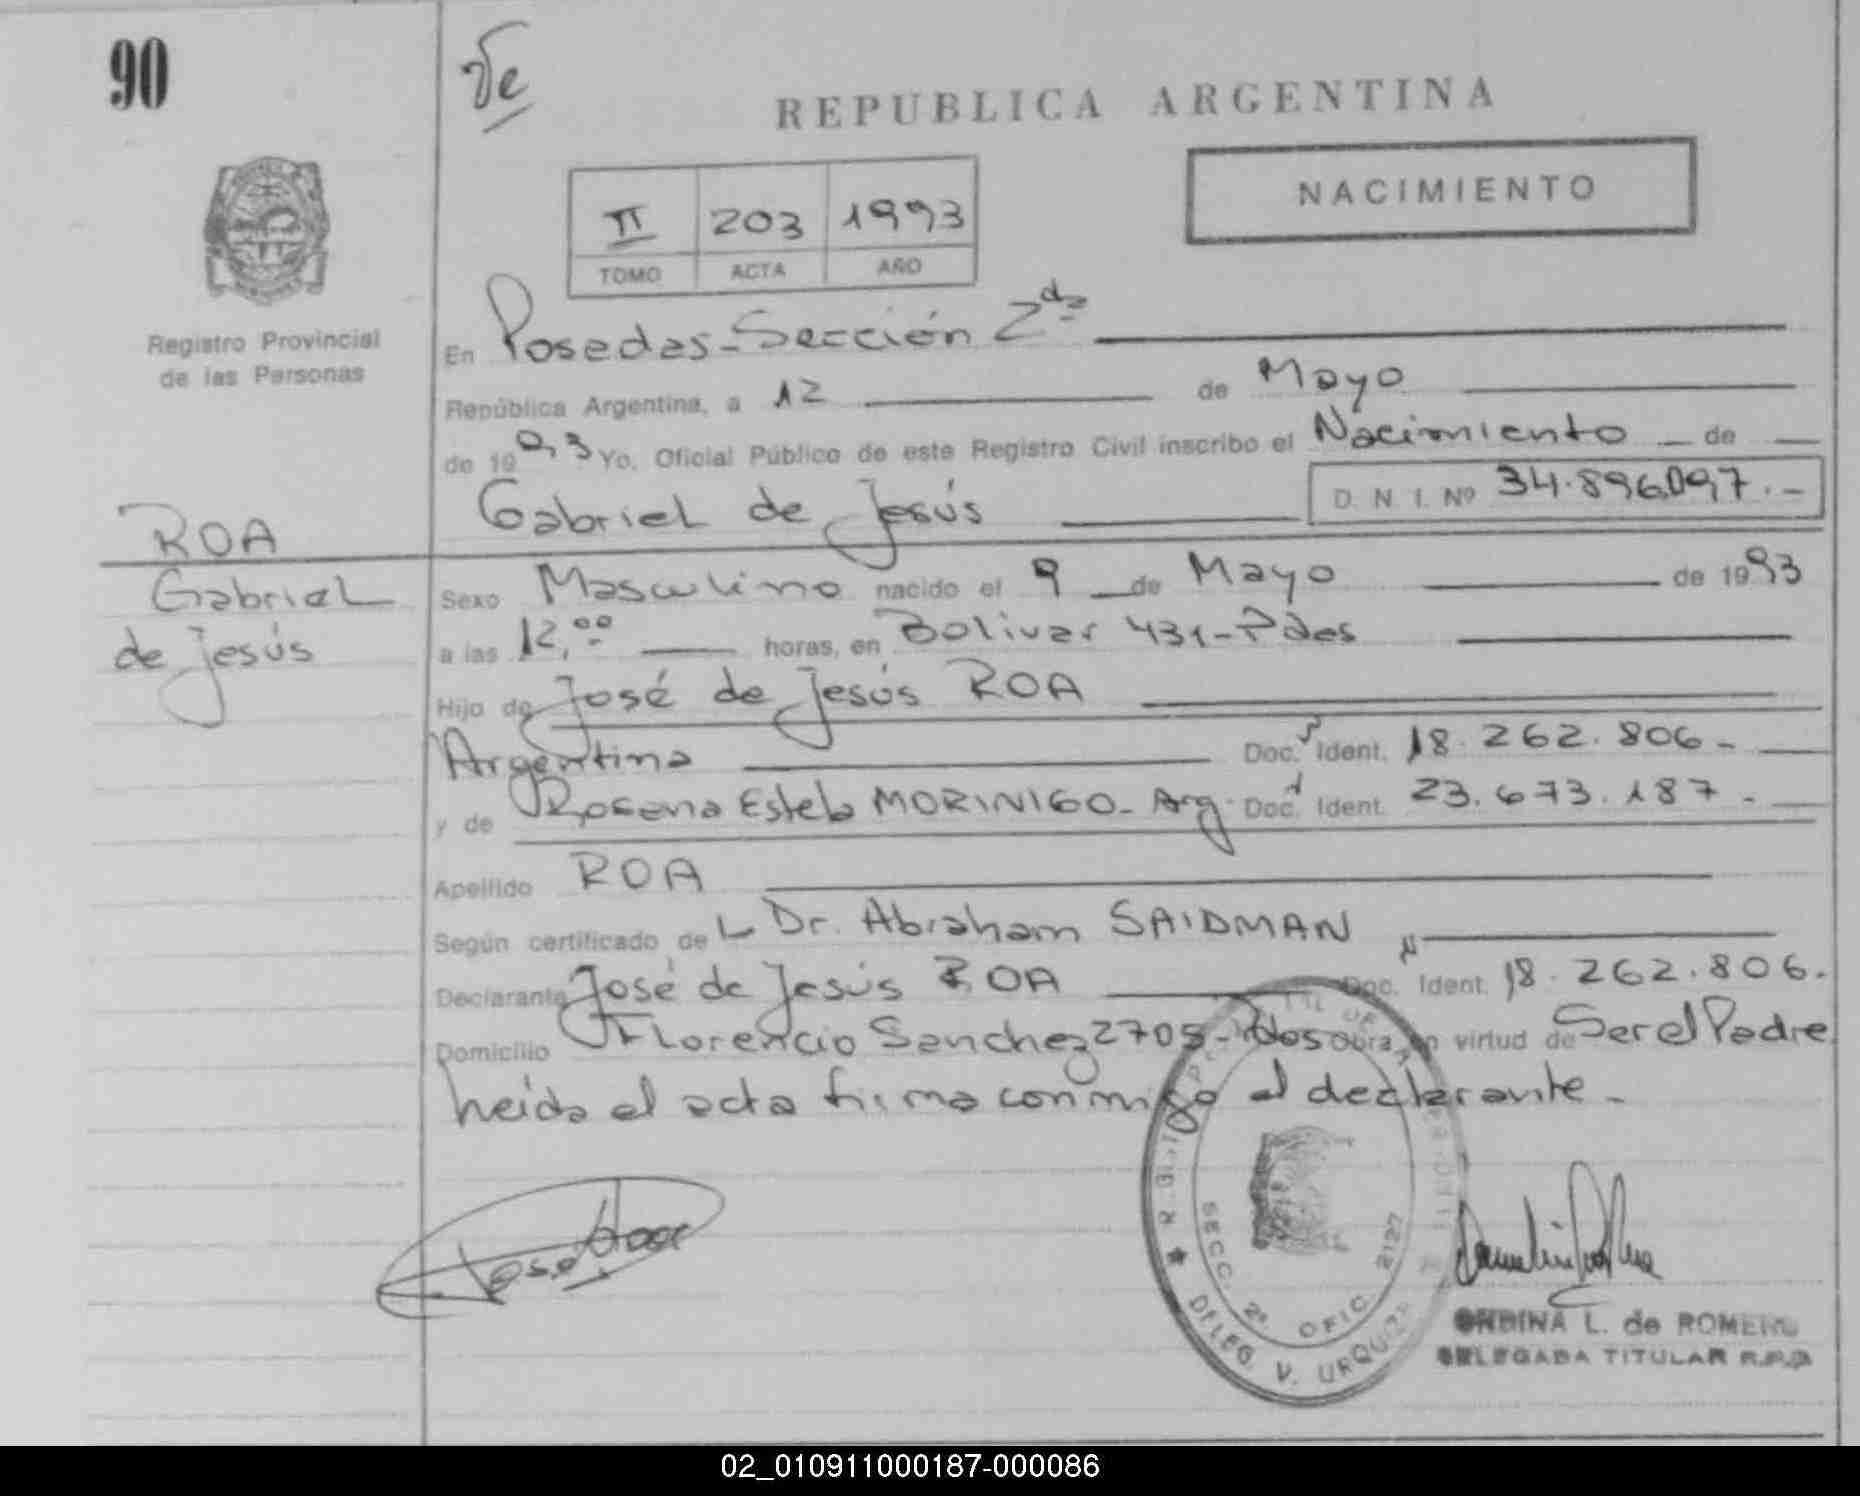 90
REPUBLICA ARGENTINA
NACIMIENTO
II 203 1993
TOMO ACTA AÑO
Registro Provincial
de las Personas
En Posadas-Sección 2da
República Argentina, a 12 de Mayo
de 1993 Yo, Oficial Público de este Registro Civil inscribo el Nacimiento de
Gabriel de Jesús D. N. I. Nº 34.896.097.-
ROA
Gabriel
de Jesús
Sexo Masculino nacido el 9 de Mayo de 1993
a las 12,00 horas, en Bolivar 431-Pdas
Hijo de José de Jesús ROA
Argentina Doc. Ident. 18.262.806-
y de Rosana Estela MORINIGO-Arg. Doc. Ident. 23.673.187-
Apellido ROA
Según certificado de L Dr. Abraham SAIDMAN
Declarante José de Jesús ROA Doc. Ident. 18.262.806.
Domicilio Florencio Sanchez 2705-Pdas Obra en virtud de Ser el Padre
Leida el acta firma conmigo el declarante-
SECC. 2ª. OFIC. 2127
DELEG. V. URQUIZA
Jose Roa
ONDINA L. de ROMERO
DELEGADA TITULAR R.P.P.
02_010911000187-000086